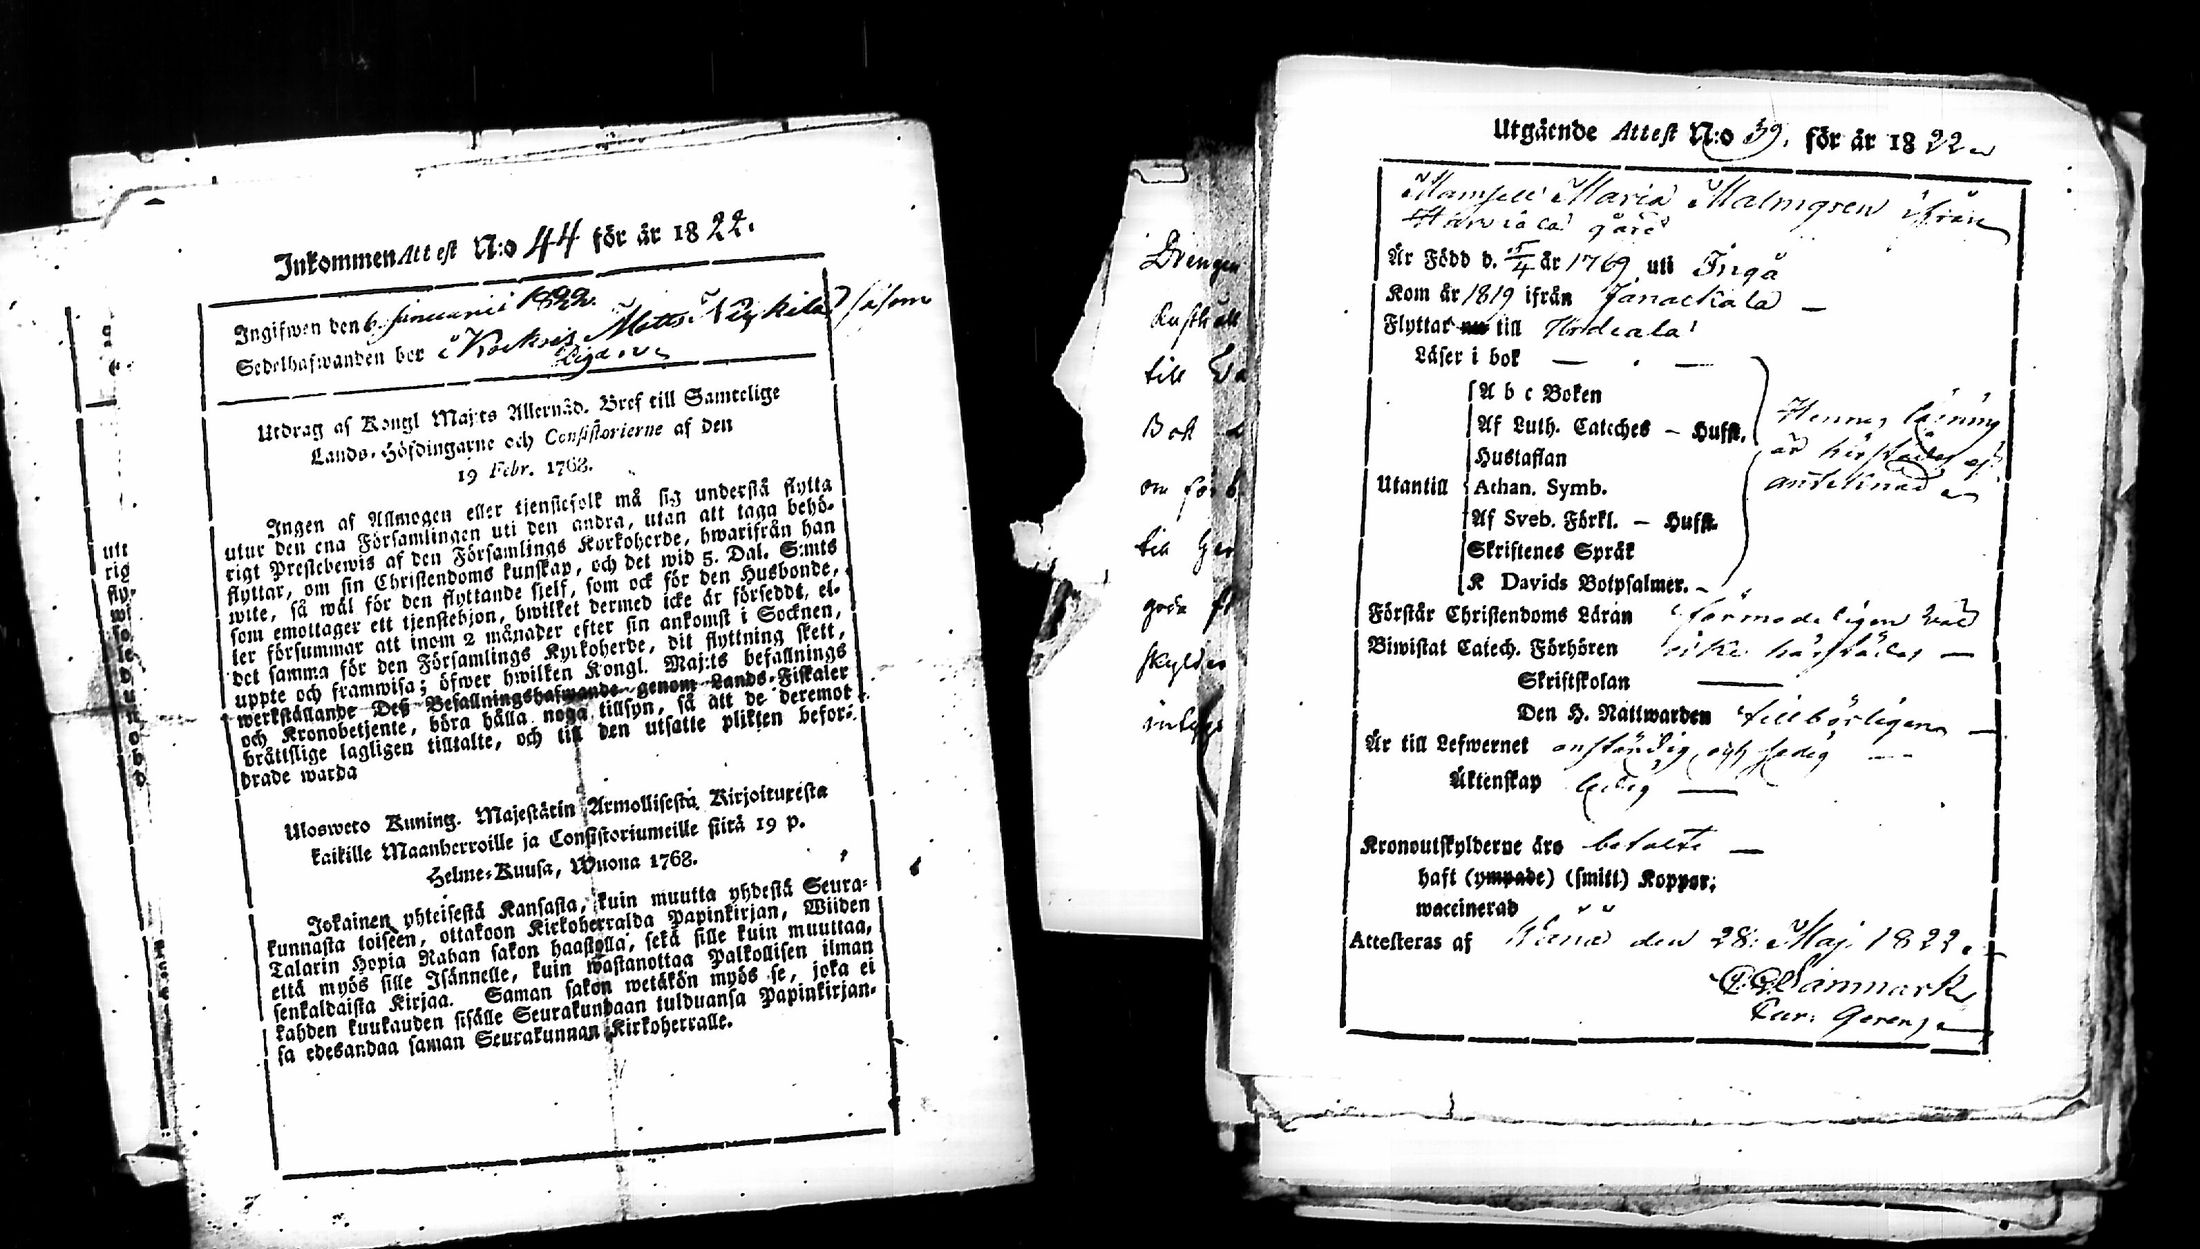 Inkommen Attest N:o 44 för år 1822.
Ingifwen den 6 Januarii 1822.
Sedelhafwanden bor i Matts såsom
Utdrag af Kongl Maj:ts Allernåd. Bref till Samtelige
Lands-Höfdingarne och Consistorierne af den
19 Febr. 1768.
Ingen af Allmogen eller tjenstefolk må sig understå flytta
utur den ena Församlingen uti den andra, utan att taga behö-
rigt Prestebewis af den Församlings Kyrkoherde, hwarifrån han
flyttar, om sin Christendoms kunskap, och det wid 5. Dal. S:mts
wite, så wäl för den flyttande sjelf, som ock för den Husbonde,
som emottager ett tjenstehjon, hwilket dermed icke är försedt, el-
ler försummar att inom 2 månader efter sin ankomst i Socknen,
det samma för den Församlings Kyrkoherde, dit flyttning skett,
uppte och framwisa; öfwer hwilken Kongl. Maj:ts befallnings
werkställande Deß Befallningshafwande genom Lands-Fiskaler
och Kronobetjente, böra hålla noga tillsyn, så att de deremot
bråttslige lagligen tilltalte, och till den utsatte plikten befor-
drade warda
Ulosweto Kuning. Majestätin Armollisesta Kirjoituxesta
kaikille Maanherroille ja Consistoriumeille siitä 19 p.
Helme-Kuusa, Wuona 1768.
Jokainen yhteisestä Kansasta, kuin muutta yhdestä Seura-
kunnasta toiseen, ottakoon Kirkoherralda Papinkirjan, Wiiden
Talarin Hopia Rahan sakon haastolla, sekä sille kuin muuttaa,
että myös sille Isännelle, kuin wastanottaa Palkollisen ilman
senkaldaista Kirjaa. Saman sakon wetäkön myös se, joka ei
kahden kuukauden sisälle Seurakundaan tulduansa Papinkirjan-
sa edesandaa saman Seurakunnan Kirkoherralle.
Drengen
till
Bok
till
goda
Utgående Attest N:o 39. för år 1822
Mamsell Maria Malmgren ifrån
Harviala gård
Är Född d. 5/4 år 1769 uti Ingå
Kom år 1819 ifrån Janackala
Flyttar nu till Urdiala
Läser i bok
A b c Boken
Af Luth. Cateches - Hufst.
Hustaflan
Utantill Athan. Symb.
Af Sveb. Förkl. - Hufst.
Skriftenes Språk
K Davids Botpsalmer.
Hennes läsning
är härstädes ej
antecknad
Förstår Christendoms Läran förmodeligen wäl
Biwistat Catech. Förhören icke härstädes
Skriftskolan
Den H. Nattwarden tillbörligen
Är till Lefwernet anständig och sedig
Äktenskap ledig
Kronoutskylderne äro betalte
haft (ympade) (smitt) Koppor;
waccinerad
Attesteras af den 28 Maj 1822